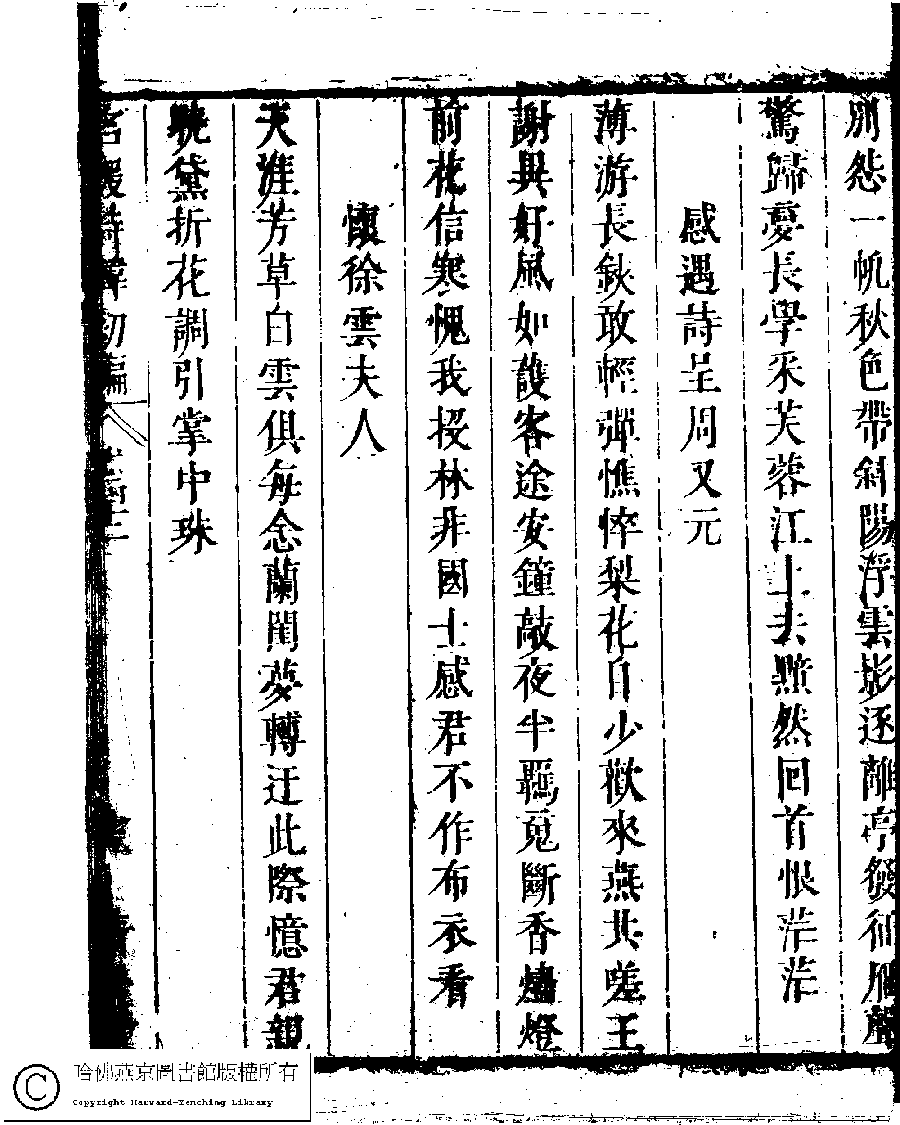 別怨一帆秋色帶斜陽浮雲影逐離亭發征鴈聲
驚歸夢長學采芙蓉江上去黯然回首恨茫茫
感遇詩呈周又元
薄游長鋏敢輕彈憔悴梨花日少歡來燕共嗟王
謝與好風如護客途安鐘敲夜半羈䰟斷香燼燈
前花信寒愧我投林非國士感君不作布衣看
懷徐雲夫人
天涯芳草白雲俱每念蘭閨夢轉迂此際憶君親
曉黛折花調引掌中珠
名媛詩緯初編
哈佛燕京圖書館版權所有
Copyright Harvard-Yenching Library